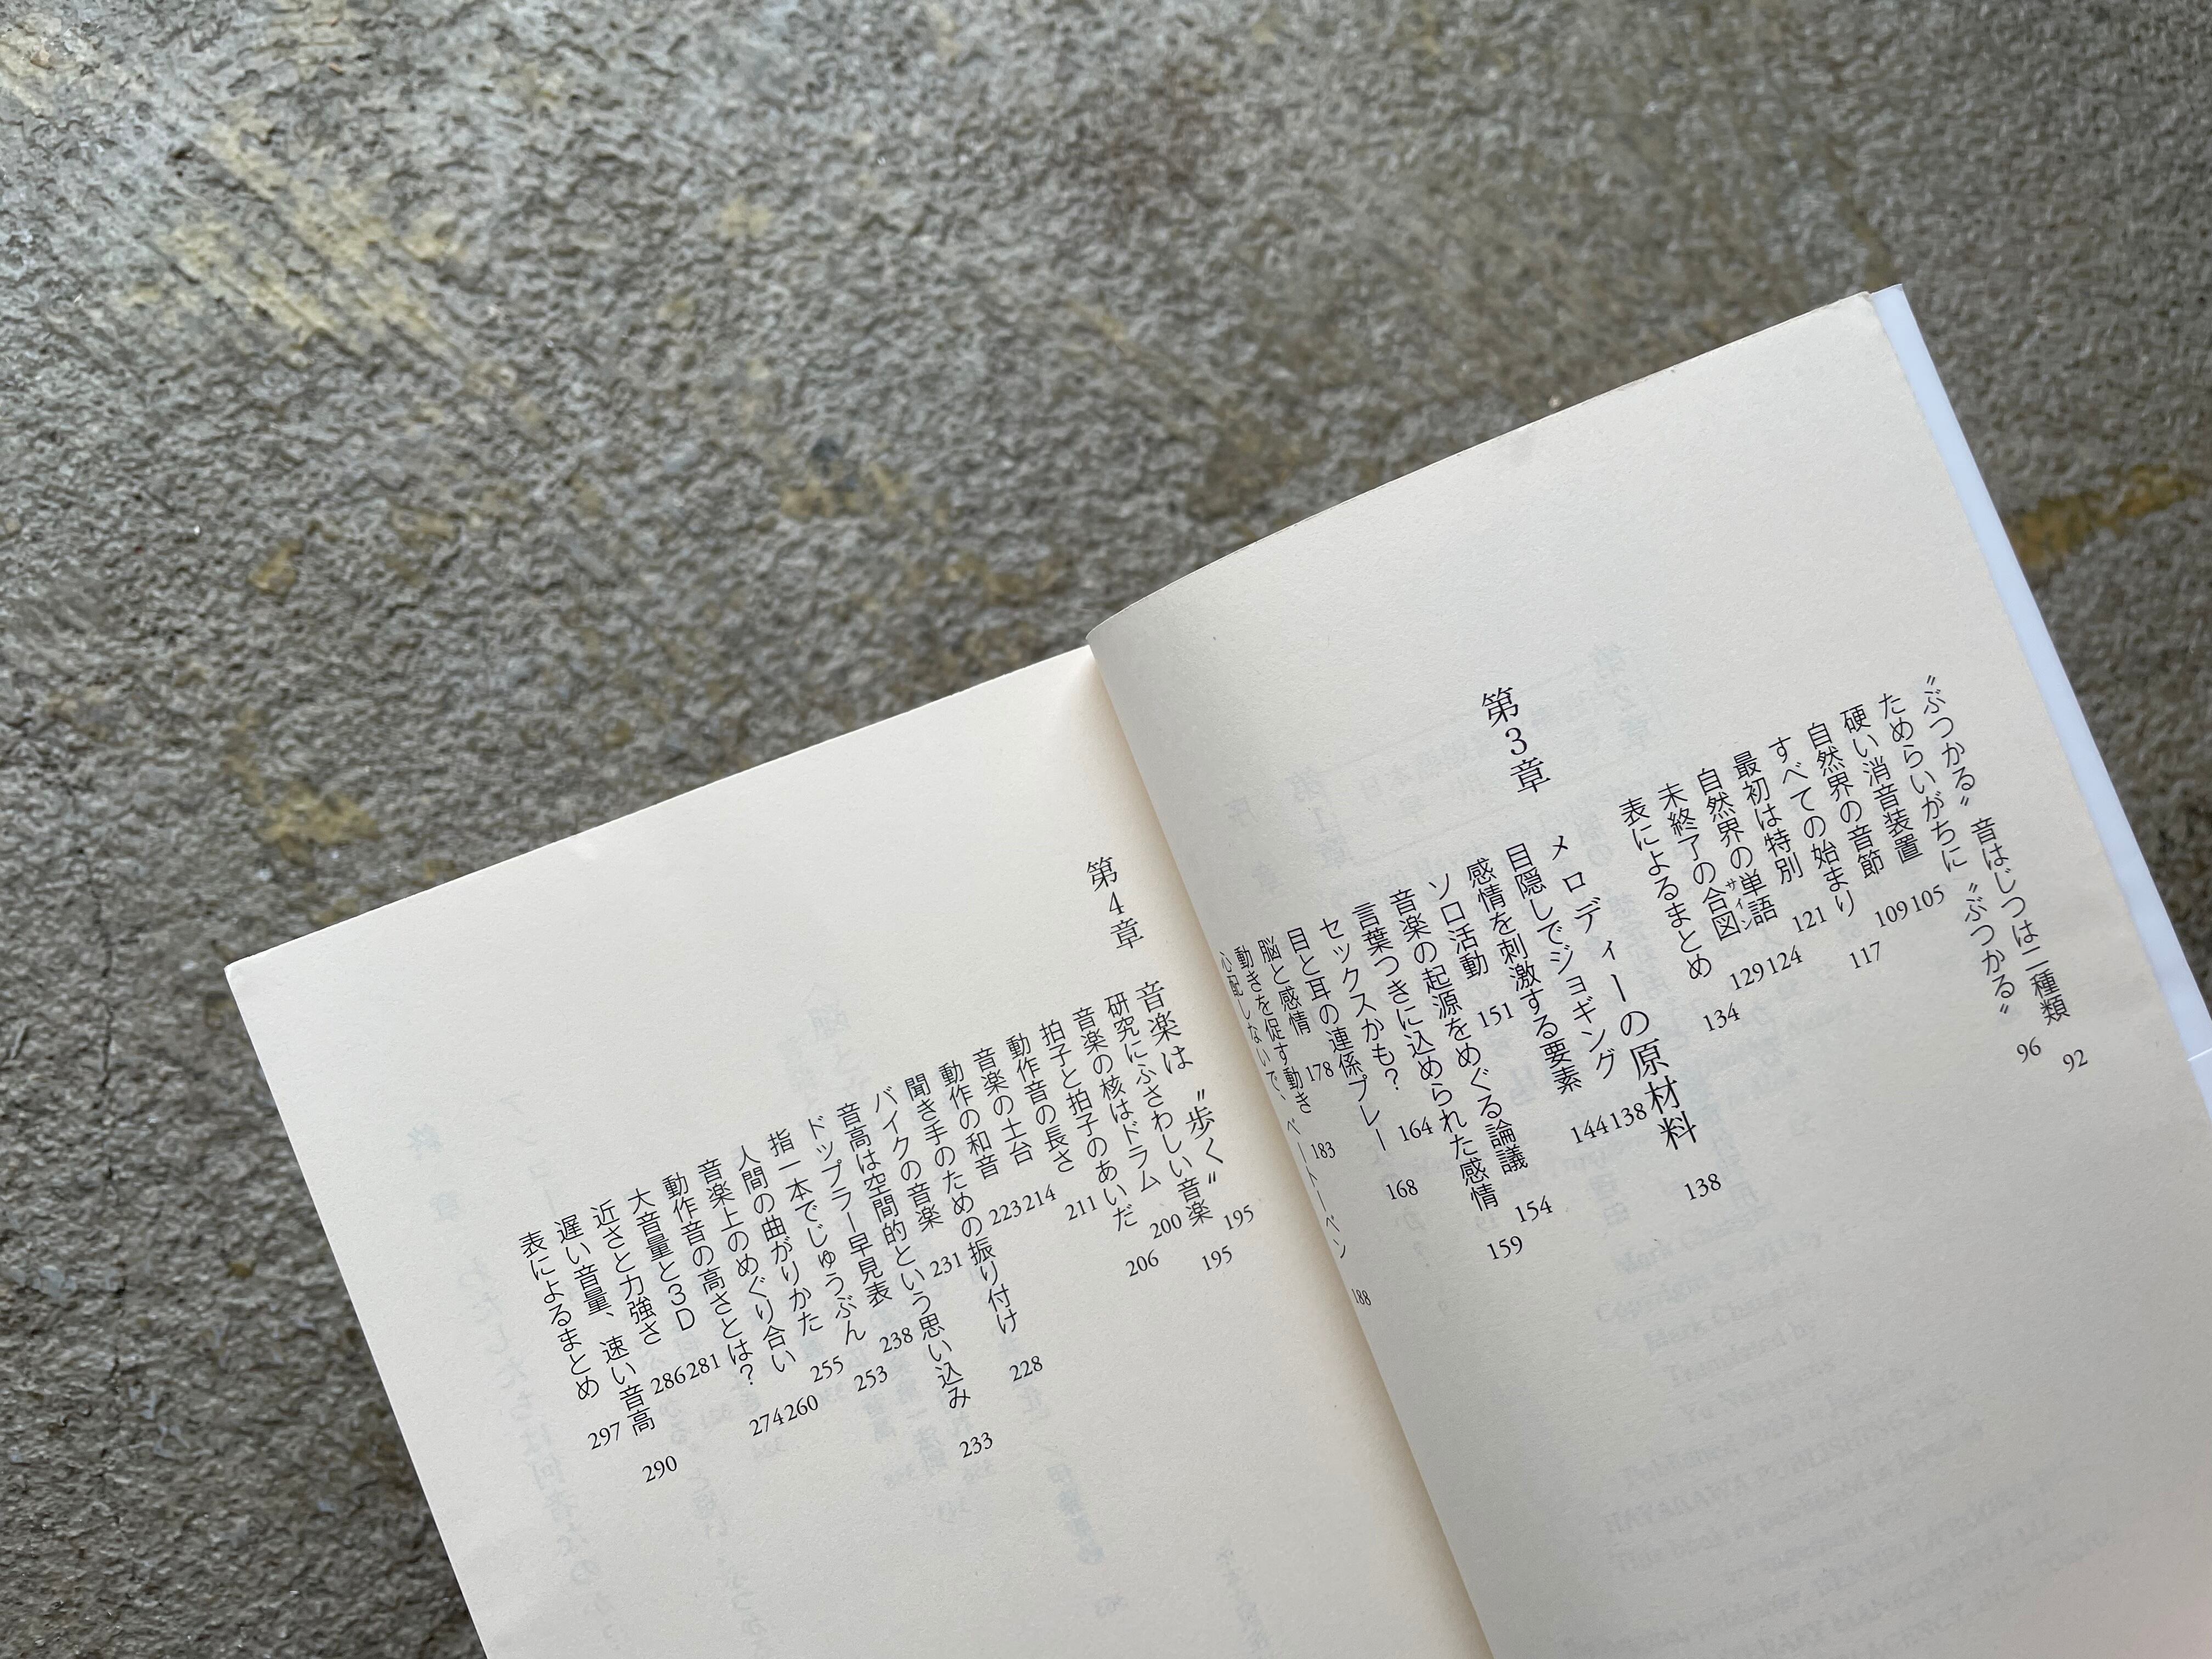 〝ぶつかる〟音はじつは二種類 92
ためらいがちに〝ぶつかる〟 96
硬い消音装置 105
自然界の音節 109
すべての始まり 117
最初は特別 121
自然界の単語 124
未終了の合図サイン 129
表によるまとめ 134
第3章 メロディーの原材料 138
目隠しでジョギング 138
感情を刺激する要素 144
ソロ活動 151
音楽の起源をめぐる論議 154
言葉つきに込められた感情 159
セックスかも? 164
目と耳の連係プレー 168
脳と感情 178
動きを促す動き 183
心配しないで、ベートーベン 188
第4章 音楽は〝歩く〟 195
研究にふさわしい音楽 195
音楽の核はドラム 200
拍子と拍子のあいだ 206
動作音の長さ 211
音楽の土台 214
動作の和音 223
聞き手のための振り付け 228
バイクの音楽 231
音高は空間的という思い込み 233
ドップラー早見表 238
指一本でじゅうぶん 253
人間の曲がりかた 255
音楽上のめぐり合い 260
動作音の高さとは? 274
大音量と3D 281
近さと力強さ 286
遅い音量、速い音高 290
表によるまとめ 297